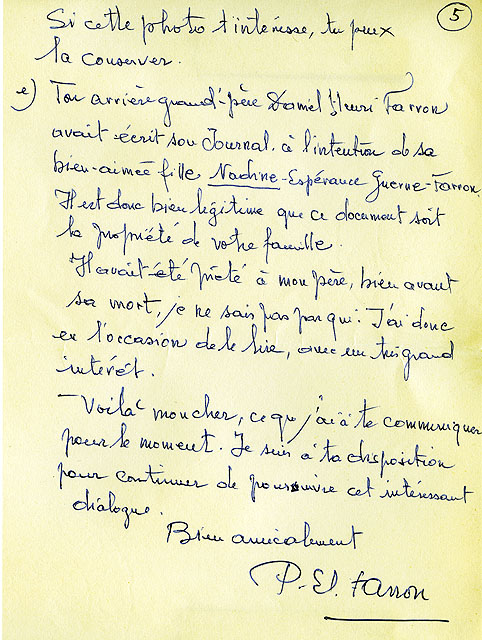 5
Si cette photo t'intéresse, tu peux
la conserver.
e) Ton arrière grand-père Daniel Henri Farron
avait écrit son Journal à l'intention de sa
bien-aimée fille Nadine-Espérance Guerne-Farron.
Il est donc bien légitime que ce document soit
la propriété de votre famille.
Il avait été prêté à mon père, bien avant
sa mort, je ne sais pas par qui. J'ai donc
eu l'occasion de le lire, avec un très grand
intérêt.
- Voilà mon cher, ce que j'ai à te communiquer
pour le moment. Je suis à ta disposition
pour continuer de poursuivre cet intéressant
dialogue.
Bien amicalement
P.-El. Farron